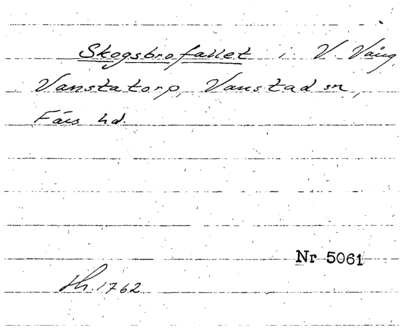 Skogsbrofallet i V Vång,
Vanstatorp, Vanstad sn,
Färs hd.
Nr 5061
Sh. 1762